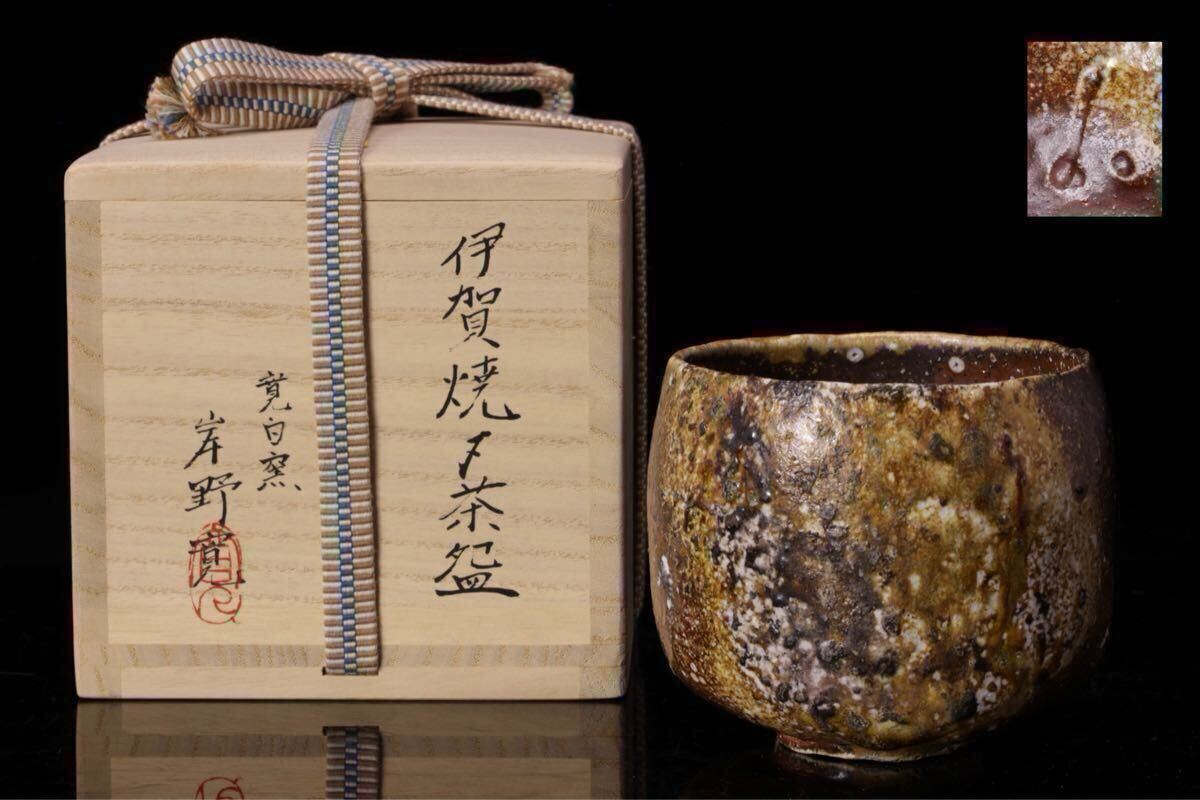 伊賀焼〆茶盌
寛白窯
岸野寛